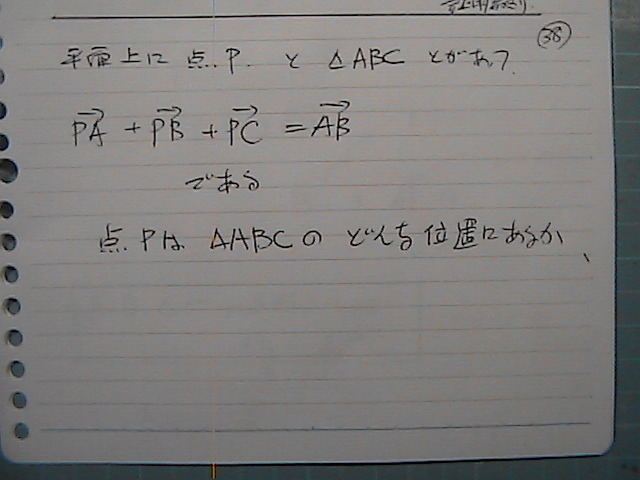 ㊳
平面上に 点 P. と △ABC とがあって
PA + PB + PC = AB
である
点 Pは △ABCの どんな位置にあるか、